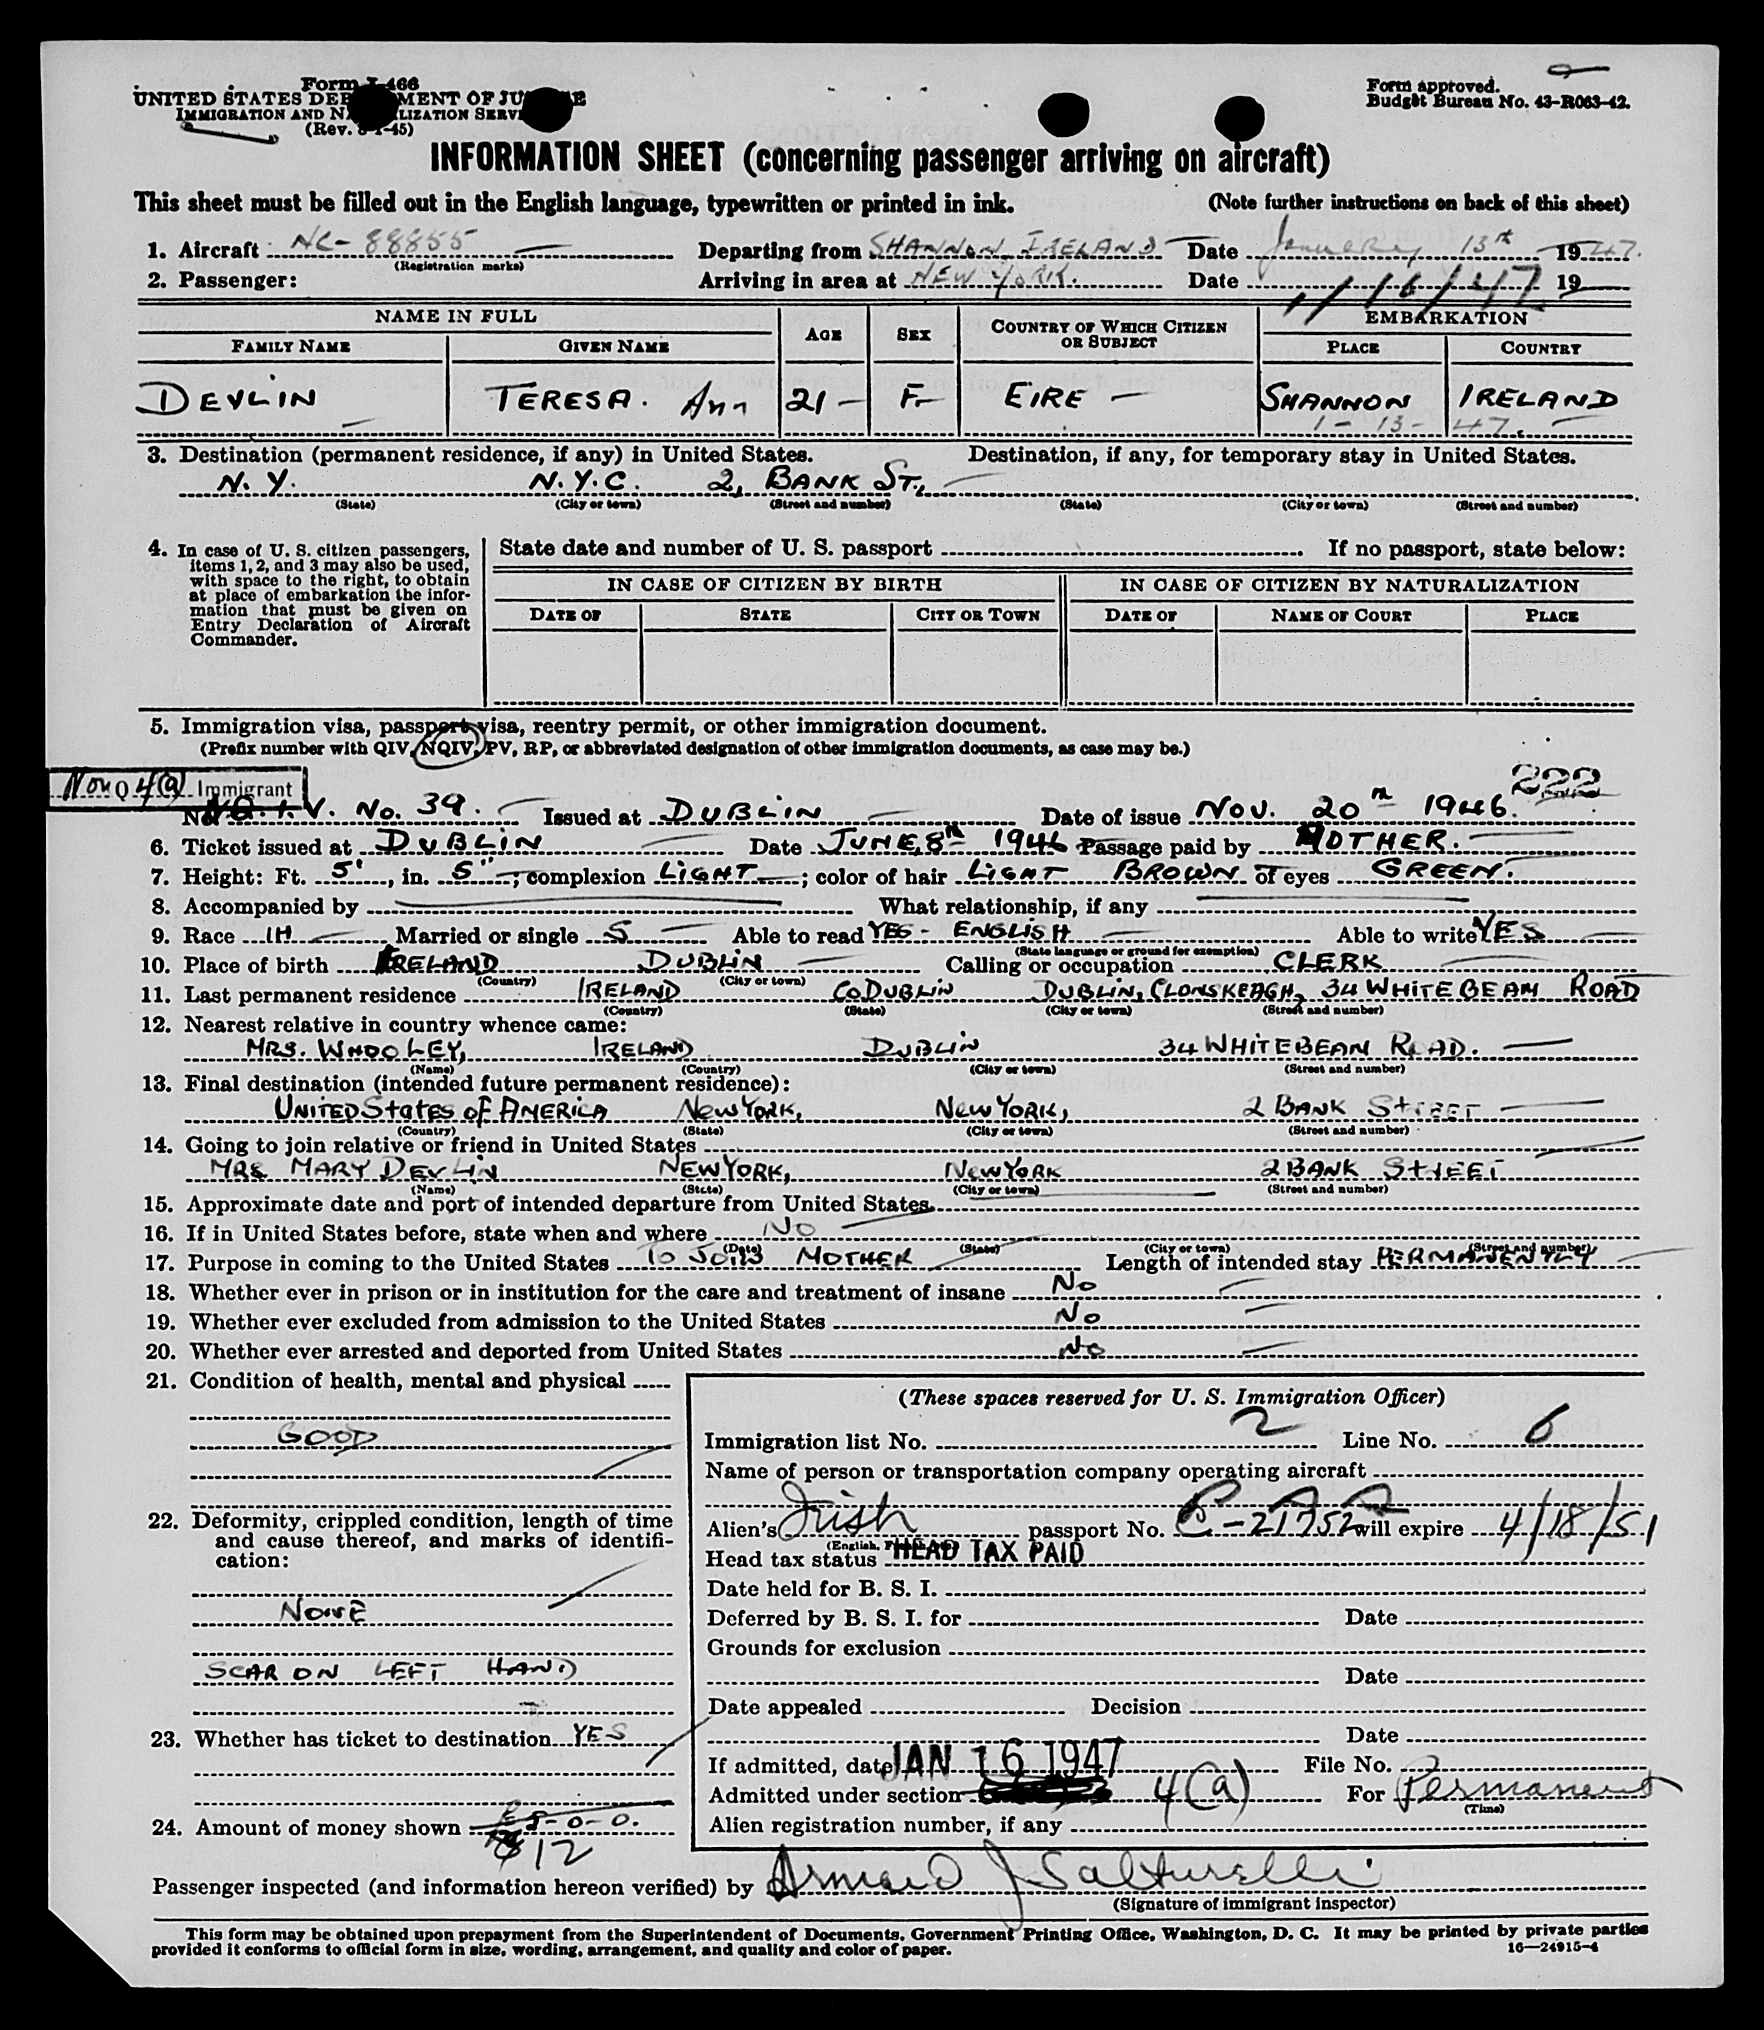 Form I-466
UNITED STATES DEPARTMENT OF JUSTICE
IMMIGRATION AND NATURALIZATION SERVICE
(Rev. 8-1-45)
Form approved.
Budget Bureau No. 43-R063-42.
INFORMATION SHEET (concerning passenger arriving on aircraft)
This sheet must be filled out in the English language, typewritten or printed in ink. (Note further instructions on back of this sheet)
1. Aircraft NC-88855 Departing from SHANNON, IRELAND Date January 13th 1947.
(Registration marks)
2. Passenger: Arriving in area at NEW YORK. Date 1/16/47 19
NAME IN FULL AGE SEX COUNTRY OF WHICH CITIZEN OR SUBJECT EMBARKATION
FAMILY NAME GIVEN NAME PLACE COUNTRY
DEVLIN TERESA. Ann 21 - F- EIRE - SHANNON IRELAND
1 - 13 - 47.
3. Destination (permanent residence, if any) in United States. Destination, if any, for temporary stay in United States.
N. Y. N.Y.C. 2, BANK ST.,
(State) (City or town) (Street and number) (State) (City or town) (Street and number)
4. In case of U. S. citizen passengers, items 1, 2, and 3 may also be used, with space to the right, to obtain at place of embarkation the information that must be given on Entry Declaration of Aircraft Commander.
State date and number of U. S. passport If no passport, state below:
IN CASE OF CITIZEN BY BIRTH IN CASE OF CITIZEN BY NATURALIZATION
DATE OF STATE CITY OR TOWN DATE OF NAME OF COURT PLACE
5. Immigration visa, passport visa, reentry permit, or other immigration document.
(Prefix number with QIV, NQIV, PV, RP, or abbreviated designation of other immigration documents, as case may be.)
Non Q 4(a) Immigrant 222
No. N.Q.I.V. No. 39. Issued at DUBLIN Date of issue NOV. 20th 1946.
6. Ticket issued at DUBLIN Date JUNE, 8th 1946 Passage paid by MOTHER.
7. Height: Ft. 5', in. 5"; complexion LIGHT; color of hair LIGHT BROWN of eyes GREEN.
8. Accompanied by What relationship, if any
9. Race IH Married or single S Able to read YES - ENGLISH Able to write YES
(State language or ground for exemption)
10. Place of birth IRELAND DUBLIN Calling or occupation CLERK
(Country) (City or town)
11. Last permanent residence IRELAND CO DUBLIN DUBLIN, CLONSKEAGH, 34 WHITE BEAM ROAD
(Country) (State) (City or town) (Street and number)
12. Nearest relative in country whence came:
MRS. WHOOLEY, IRELAND DUBLIN 34 WHITEBEAM ROAD.
(Name) (Country) (City or town) (Street and number)
13. Final destination (intended future permanent residence):
UNITED States of AMERICA NEW YORK, NEW YORK, 2 BANK STREET
(Country) (State) (City or town) (Street and number)
14. Going to join relative or friend in United States
MRS MARY DEVLIN NEW YORK, NEW YORK 2 BANK STREET
(Name) (State) (City or town) (Street and number)
15. Approximate date and port of intended departure from United States.
16. If in United States before, state when and where NO
(Date) (State) (City or town) (Street and number)
17. Purpose in coming to the United States TO JOIN MOTHER Length of intended stay PERMANENTLY
18. Whether ever in prison or in institution for the care and treatment of insane NO
19. Whether ever excluded from admission to the United States NO
20. Whether ever arrested and deported from United States NO
21. Condition of health, mental and physical
GOOD
22. Deformity, crippled condition, length of time and cause thereof, and marks of identification:
NONE
SCAR ON LEFT HAND
23. Whether has ticket to destination YES
24. Amount of money shown £5-0-0.
$12
(These spaces reserved for U. S. Immigration Officer)
Immigration list No. 2 Line No. 6
Name of person or transportation company operating aircraft
P A A
Alien's Irish passport No. C-21752 will expire 4/18/51
Head tax status HEAD TAX PAID
Date held for B. S. I.
Deferred by B. S. I. for Date
Grounds for exclusion
Date
Date appealed Decision
Date
If admitted, date JAN 16 1947 File No.
Admitted under section 4(a) For Permanent
(Time)
Alien registration number, if any
Passenger inspected (and information hereon verified) by Armand J Salturelli
(Signature of immigrant inspector)
This form may be obtained upon prepayment from the Superintendent of Documents, Government Printing Office, Washington, D. C. It may be printed by private parties
provided it conforms to official form in size, wording, arrangement, and quality and color of paper. 16—24915-4